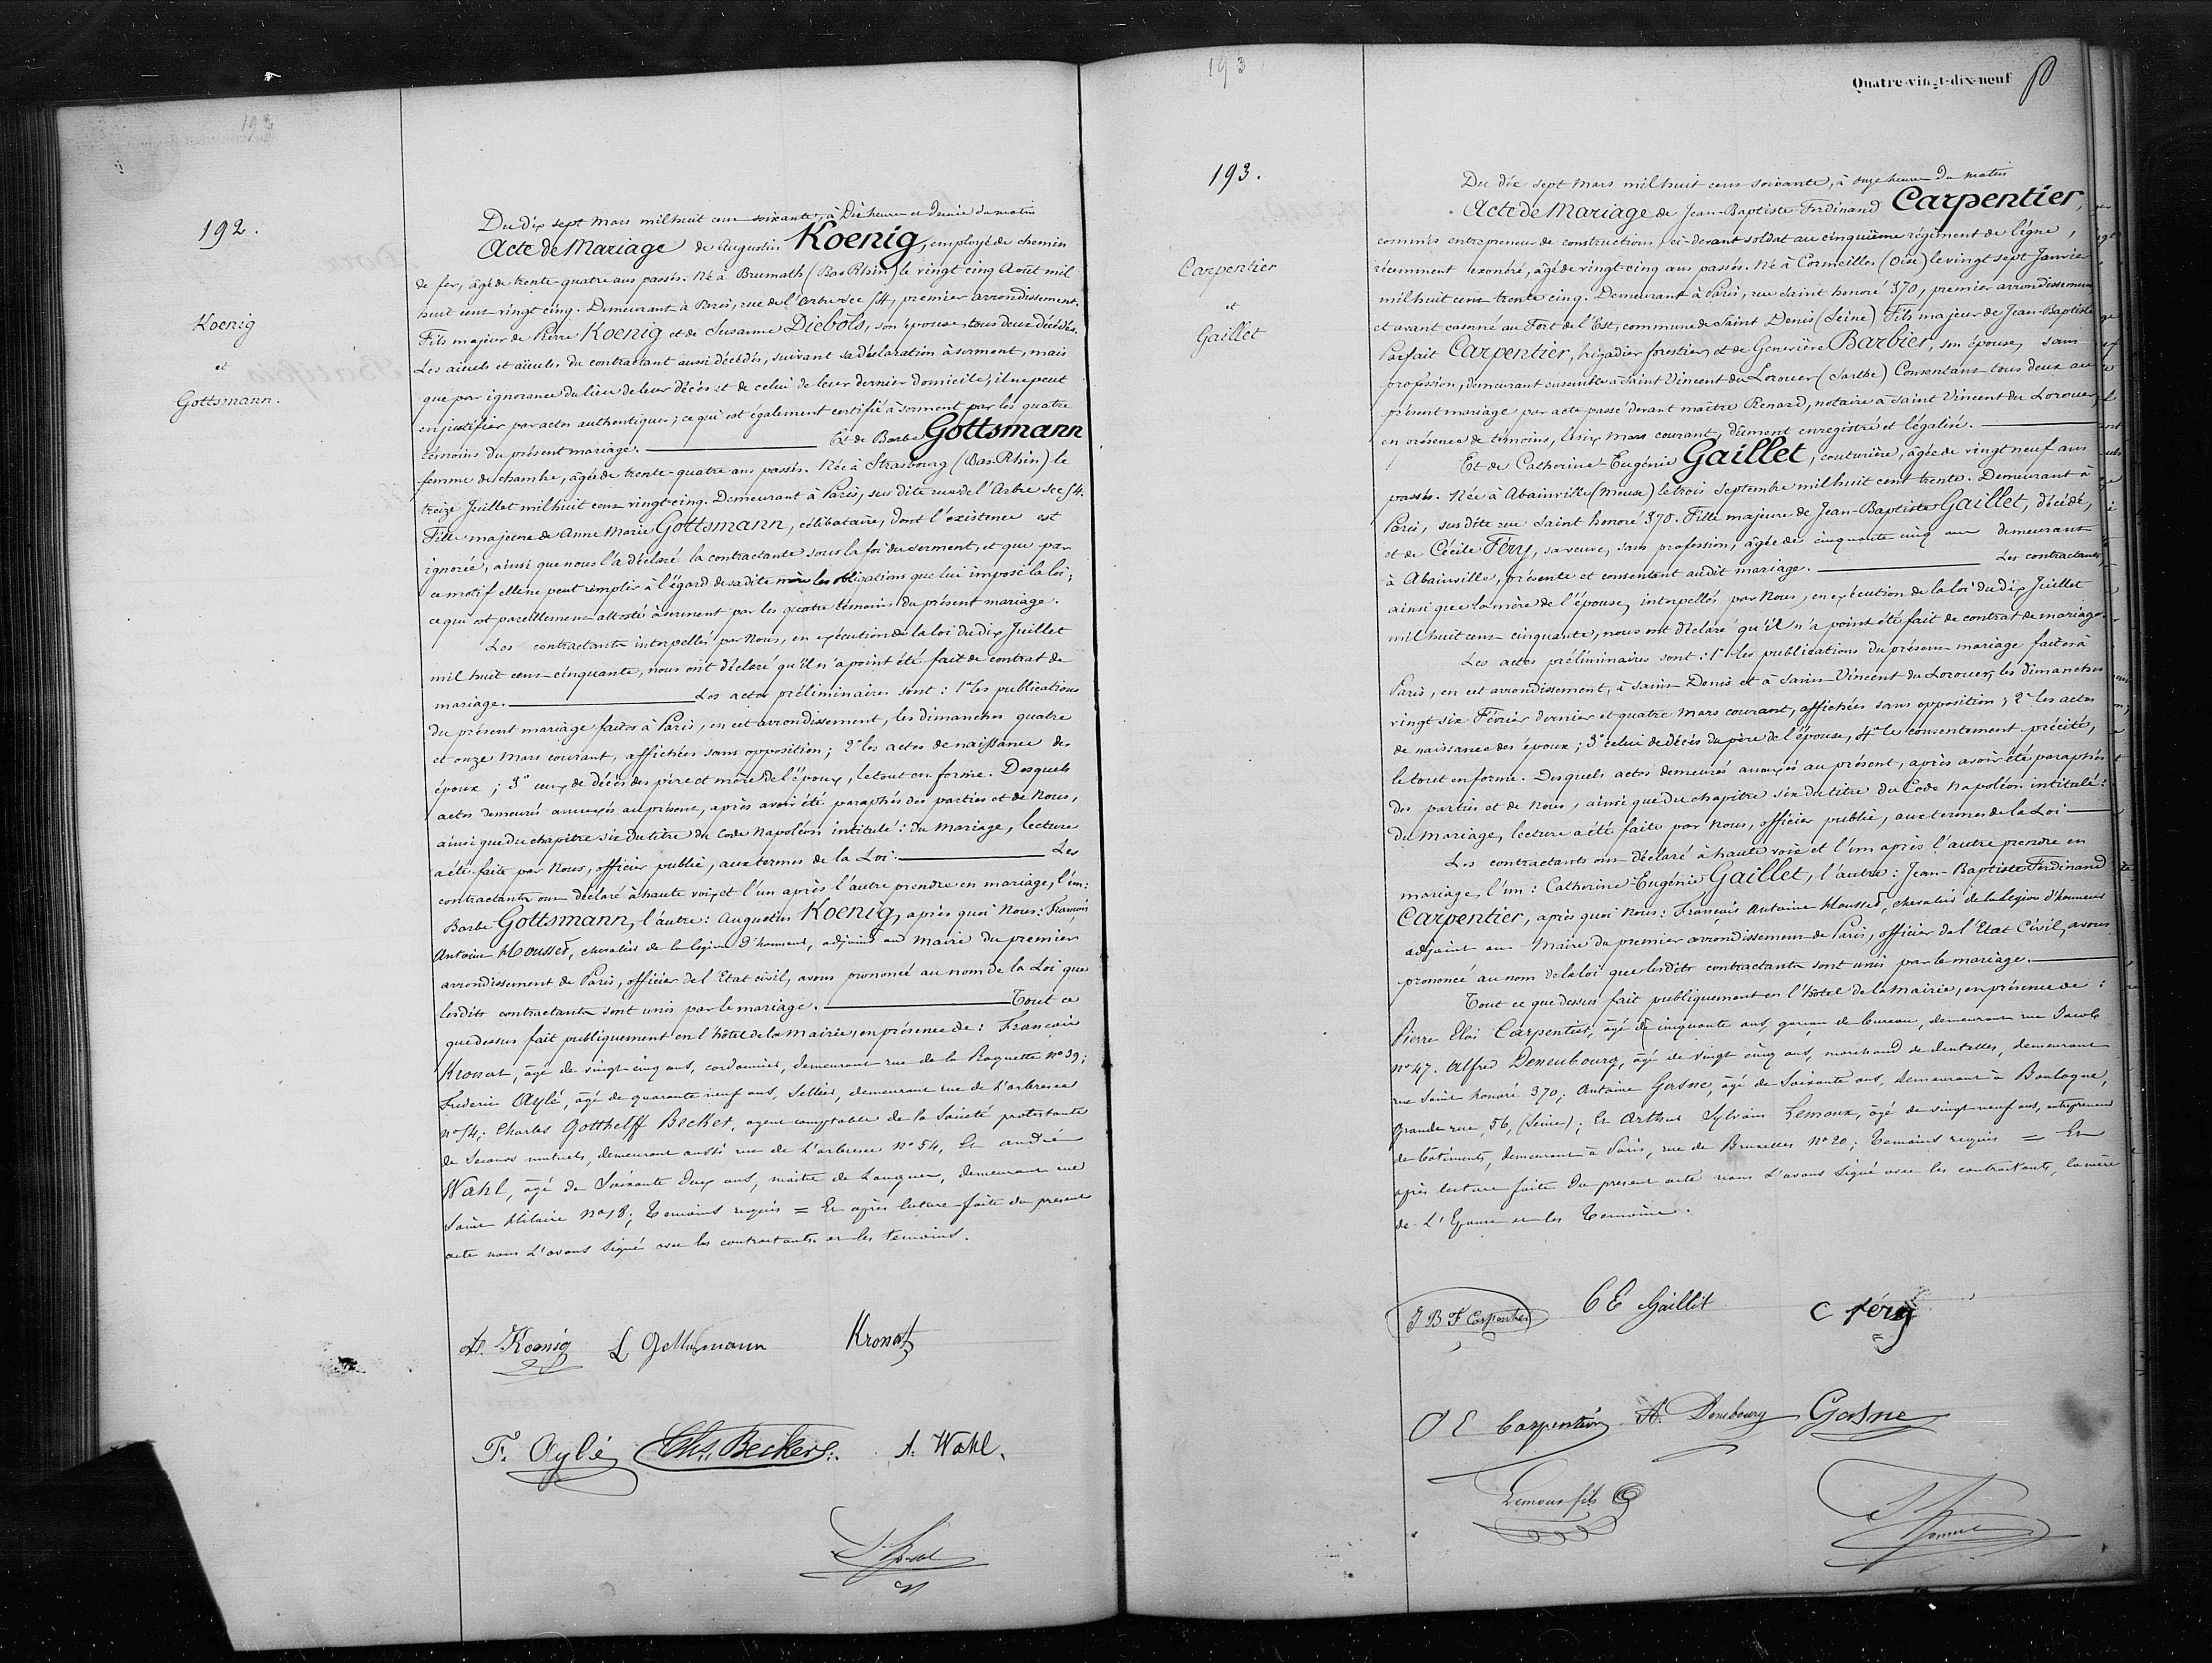 193
192.
Koenig
et
Gottsmann.
Du dix sept Mars mil huit cent soixante, à Dix heures et demie du matin
Acte de Mariage de Augustin Koenig, employé de chemin
de fer, âgé de trente-quatre ans passés. Né à Brumath (Bas Rhin) le vingt cinq Août mil
huit cent vingt cinq. Demeurant à Paris, rue de l'arbre sec 54, premier arrondissement.
Fils majeur de Pierre Koenig et de Susanne Diebols, son épouse, tous deux décédés.
Les aïeuls et aïeules du contractant aussi décédés, suivant sa déclaration à serment, mais
que par ignorance du lieu de leur décès et de celui de leur dernier domicile, il ne peut
en justifier par actes authentiques; ce qui est également certifié à serment par les quatre
témoins du présent mariage. Et de Barbe Gottsmann
femme de chambre, âgée de trente-quatre ans passés. Née à Strasbourg (Bas-Rhin) le
treize Juillet mil huit cent vingt-cinq. Demeurant à Paris, sus dite rue de l'Arbre sec 54.
Fille majeure de Anne Marie Gottsmann, célibataire, dont l'existence est
ignorée, ainsi que nous l'a déclaré la contractante sous la foi du serment, et que par
ce motif elle ne peut remplir à l'égard de sa dite mère les obligations que lui impose la loi;
ce qui est pareillement attesté à serment par les quatre témoins du présent mariage.
Les contractants interpellés par Nous, en exécution de la loi du dix Juillet
mil huit cent cinquante, nous ont déclaré qu'il n'a point été fait de contrat de
mariage. Les actes préliminaires sont: 1° les publications
du présent mariage faites à Paris, en cet arrondissement, les dimanches quatre
et onze Mars courant, affichées sans opposition; 2° les actes de naissance des
époux; 3° ceux de décès des père et mère de l'époux, le tout en forme. Desquels
actes demeurés annexés au présent, après avoir été paraphés des parties et de Nous,
ainsi que du chapitre six du titre du Code Napoléon intitulé: du Mariage, lecture
a été faite par Nous, officier public, aux termes de la Loi. Les
contractants ont déclaré à haute voix et l'un après l'autre prendre en mariage, l'un:
Barbe Gottsmann, l'autre: Augustin Koenig, après quoi Nous: François
Antoine Mousset, chevalier de la légion d'honneur, adjoint au Maire du premier
arrondissement de Paris, officier de l'Etat civil, avons prononcé au nom de la Loi que
lesdits contractants sont unis par le mariage. Tout ce
que dessus fait publiquement en l'hôtel de la Mairie, en présence de: François
Kronert, âgé de vingt-cinq ans, cordonnier, demeurant rue de la Roquette n° 39;
Frederic Aylé, âgé de quarante neuf ans, Sellier, demeurant rue de l'arbresec
n° 54; Charles Gotthelff Becker, agent comptable de la Société protestante
de Secours mutuels, demeurant aussi rue de l'arbresec n° 54, Et andré
Wahl, âgé de Soixante Deux ans, maitre de Langues, demeurant rue
Saint Hilaire n° 18; Temoins requis = Et après lecture faite du present
acte nous l'avons signé avec les contractants et les temoins.
A. Koenig
Gottsmann
Kronert
F. Aylé
Chs. Becker
A. Wahl.
193
Quatre-vingt-dix-neuf
193.
Carpentier
et
Gaillet
Du dix sept Mars mil huit cent soixante, à onze heures du matin
Acte de Mariage de Jean-Baptiste-Ferdinand Carpentier,
commis entrepreneur de constructions, ci-devant soldat au cinquième régiment de ligne,
récemment exonéré, âgé de vingt-cinq ans passés. Né à Cormeilles (Oise) le vingt sept Janvier
mil huit cent trente cinq. Demeurant à Paris, rue Saint honoré 370, premier arrondissement
et avant caserné au Fort de l'Est, commune de Saint Denis (Seine) Fils majeur de Jean-Baptiste
Parfait Carpentier, brigadier forestier, et de Geneviève Barbier, son épouse, sans
profession, demeurant ensemble à Saint Vincent du Lorouer (Sarthe) Consentant tous deux au
présent mariage par acte passé devant maître Renard, notaire à Saint Vincent du Lorouer,
en présence de témoins, le six Mars courant, dûment enregistré et légalisé.
Et de Catherine-Eugénie Gaillet, couturière, âgée de vingt neuf ans
passés. Née à Abainville (Meuse) le trois Septembre mil huit cent trente. Demeurant à
Paris, sus dite rue Saint honoré 370. Fille majeure de Jean-Baptiste Gaillet, décédé,
et de Cécile Féry, sa veuve, sans profession, âgée de cinquante cinq ans demeurant
à Abainville, présente et consentant audit mariage. Les contractants,
ainsi que la mère de l'épouse, interpellés par Nous, en exécution de la loi du dix Juillet
mil huit cent cinquante, nous ont déclaré qu'il n'a point été fait de contrat de mariage.
Les actes préliminaires sont: 1° les publications du présent mariage faites à
Paris, en cet arrondissement, à Saint Denis et à Saint-Vincent du Lorouer, les dimanches
vingt six Février dernier et quatre Mars courant, affichées sans opposition; 2° les actes
de naissance des époux; 3° celui de décès du père de l'épouse, 4° le consentement précité,
le tout en forme. Desquels actes demeurés annexés au présent, après avoir été paraphés
des parties et de Nous, ainsi que du chapitre six du titre du Code Napoléon intitulé:
Du Mariage, lecture a été faite par Nous, officier public, aux termes de la Loi
Les contractants ont déclaré à haute voix et l'un après l'autre prendre en
mariage, l'un: Catherine-Eugénie Gaillet, l'autre: Jean-Baptiste Ferdinand
Carpentier, après quoi Nous: François Antoine Mousset, chevalier de la légion d'honneur
adjoint au Maire du premier arrondissement de Paris, officier de l'Etat Civil, avons
prononcé au nom de la loi que lesdits contractants sont unis par le mariage.
Tout ce que dessus fait publiquement en l'hôtel de la Mairie, en présence de:
Pierre Eloi Carpentier, âgé de cinquante ans, garçon de bureau, demeurant rue Jacob
n° 47. Alfred Deneubourg, âgé de vingt cinq ans, marchand de dentelles, demeurant
rue Saint honoré 370; Antoine Gasne, âgé de Soixante ans, demeurant à Boulogne,
Grande rue, 56, (Seine); Et Arthur Sylvain Lemoux, âgé de vingt-neuf ans, entrepreneur
de batiments, demeurant à Paris, rue de Bruxelles n° 20; Temoins requis = Et
après lecture faite du present acte nous l'avons signé avec les contractants, la mère
de l'Epouse et les Temoins.
J B F Carpentier
C E Gaillet
C féry
P E Carpentier
A. Deneubourg
Gasne
Lemoux fils